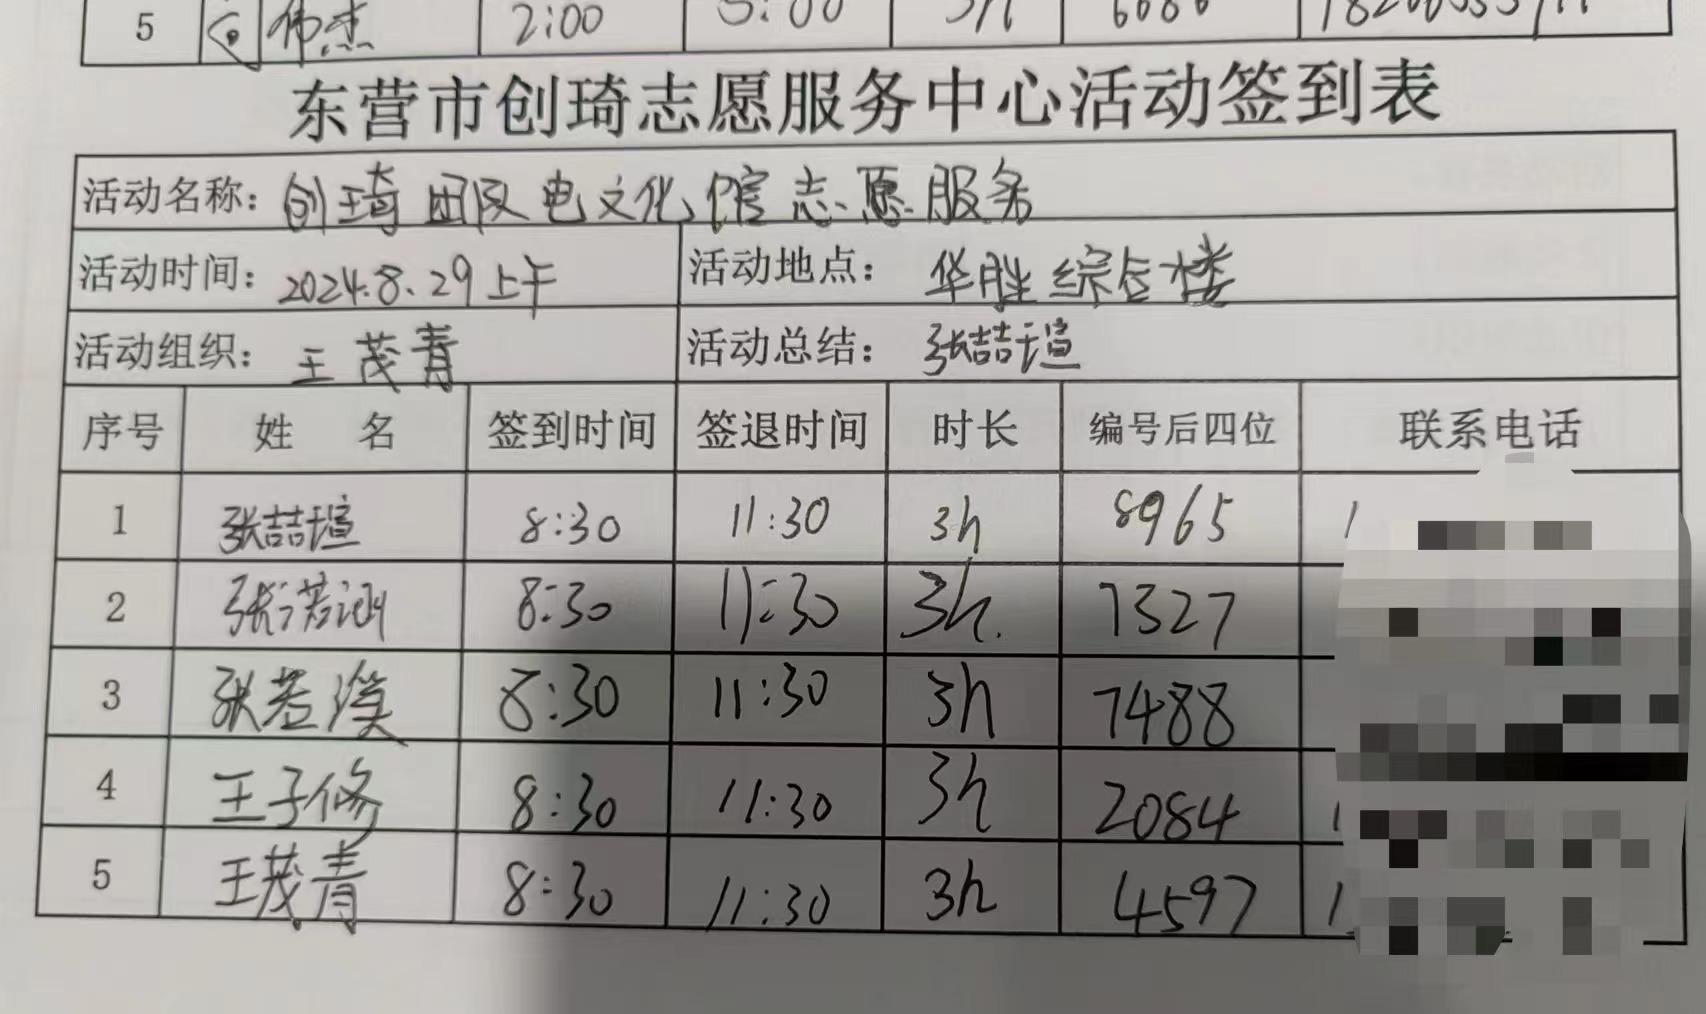 5 伟杰 2:00 5:00 3h 6686
东营市创琦志愿服务中心活动签到表
活动名称: 创琦团队电文化馆志愿服务
活动时间: 2024.8.29上午 活动地点: 华胜综合楼
活动组织: 王茂青 活动总结: 张喆瑄
序号 姓 名 签到时间 签退时间 时长 编号后四位 联系电话
1 张喆瑄 8:30 11:30 3h 8965 1
2 张诺涵 8:30 11:30 3h. 7327
3 张若漠 8:30 11:30 3h 7488
4 王子修 8:30 11:30 3h 2084 1
5 王茂青 8:30 11:30 3h 4597 1